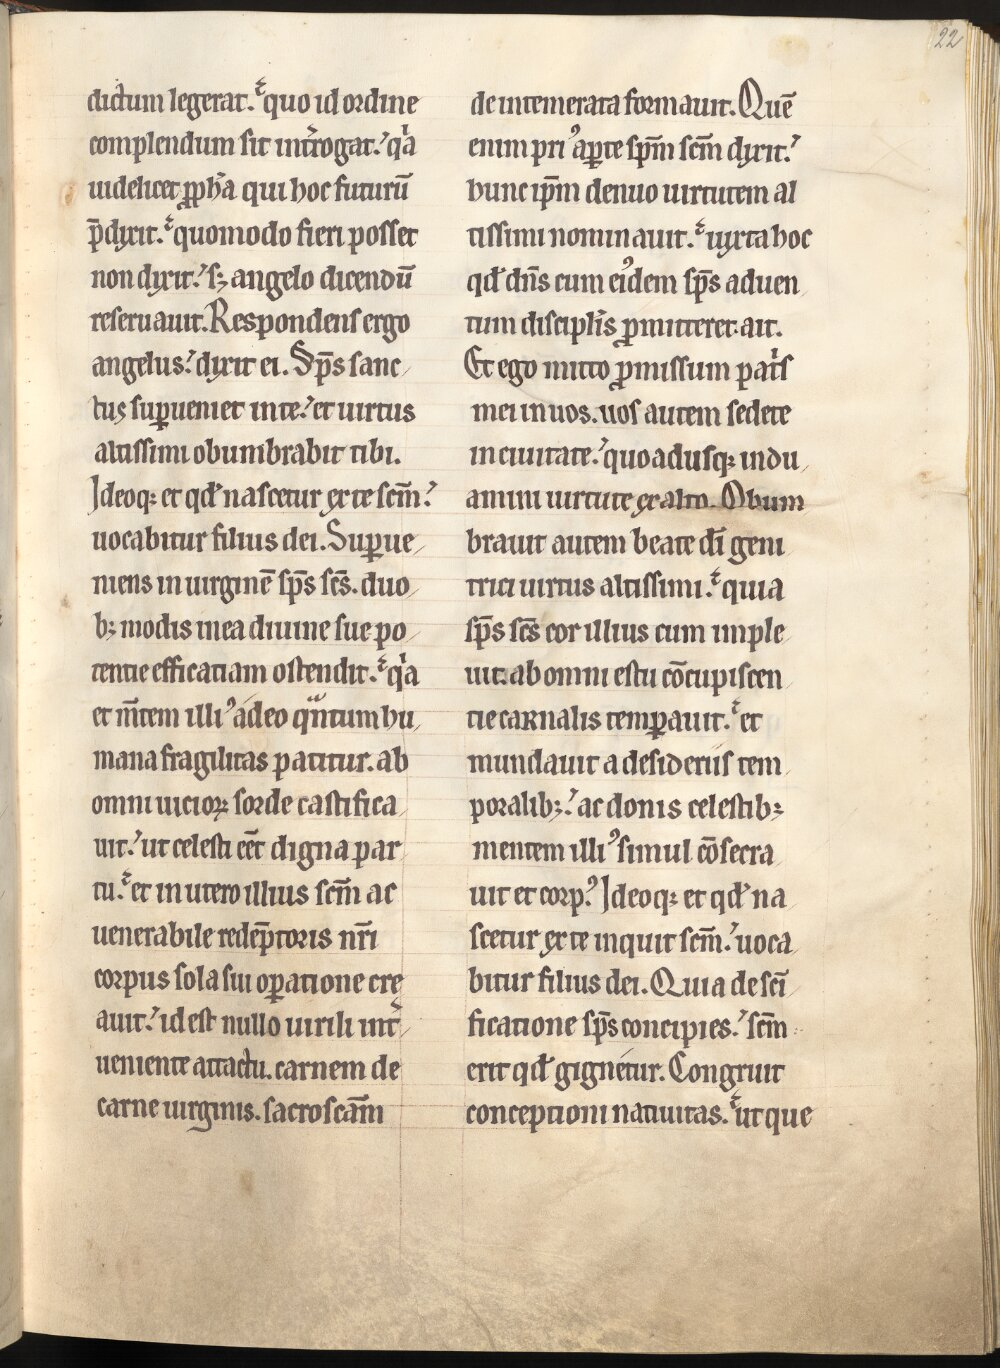 22
dictum legerat. quo id ordine
complendum sit int̾rogat. qͥa
uidelicet ꝓph̄a qui hoc futurū
p̄dixit. quomodo fieri posset
non dixit. sꝫ angelo dicendū
reseruauit. Respondens ergo
angelus. dixit ei. Sp̄s sanc
tus suꝑueniet in te. et uirtus
altissimi obumbrabit tibi.
Ideoqꝫ et qđ nascetur ex te scm̄.
uocabitur filius dei. Suꝑue
niens in uirginē sp̄s sc̄s. duo
bꝫ modis in ea diuine sue po
tentie efficatiam ostendit. qͥa
et m̄tem illiꝰ adeo qͣntum hu
mana fragilitas patitur. ab
omni uicioꝝ sorde castifica
uit. ut celesti eēt digna par
tu. et in utero illius scm̄ ac
uenerabile redēptoris nr̄i
corpus sola sui oꝑatione cre
auit. id est nullo uirili int̾
ueniente attactu. carnem de
carne uirginis. sacroscām
de intemerata formauit. Quē
enim priꝰ aꝑte spm̄ scm̄ dixit.
hunc ip̄m denuo uirtutem al
tissimi nominauit. iuxta hoc
qđ dn̄s cum eiꝰdem sp̄s aduen
tum discipl̄is ꝓmitteret. ait.
Et ego mitto ꝓmissum patͥs
mei in uos. uos autem sedete
in ciuitate. quoadusqꝫ indu
amini uirtute ex alto. Obum
brauit autem beate dī geni
trici uirtus altissimi. quia
sp̄s sc̄s cor illius cum imple
uit. ab omni estu cōcupiscen
tie carnalis temꝑauit. et
mundauit a desideriis tem
poralibꝫ. ac donis celestibꝫ
mentem illiꝰ simul cōsecra
uit et corpꝰ. Ideoqꝫ et qđ na
scetur ex te inquit scm̄. uoca
bitur filius dei. Quia de sc̄i
ficatione sp̄s concipies. scm̄
erit qđ gignetur. Congruit
conceptioni natiuitas. ut que